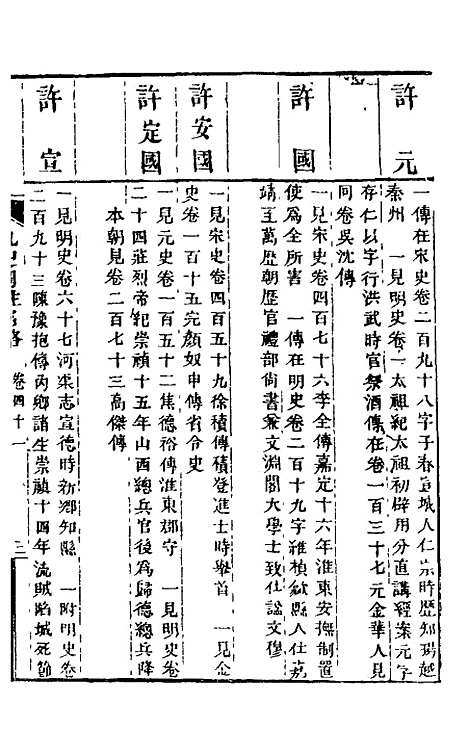 許元
一傳在宋史卷二百九十八字子春宣城人仁宗時歷知揚越
秦州　一見明史卷一太祖紀太祖初辟用分直講經案元字
存仁以字行洪武時官祭酒傳在卷一百三十七元金華人見
同卷吳沈傳
許國
一見宋史卷四百七十六李全傳嘉定十六年淮東安撫制置
使為全所害　一傳在明史卷二百十九字維楨歙縣人仕嘉
靖至萬歷朝歷官禮部尚書兼文淵閣大學士致仕諡文穆
許安國
一見宋史卷四百五十九徐積傳積登進士時舉首　一見金
史卷一百十五完顏奴申傳省令史
許定國
一見元史卷一百五十二集德裕傳淮東郡守　一見明史卷
二十四莊烈帝紀崇禎十五年山西總兵官後為歸德總兵降
本朝見卷二百七十三高傑傳
許宣
一見明史卷六十七河渠志宣德時新鄉知縣　一附明史卷
二百九十三陳豫抱傳內鄉諸生崇禎十四年流賊陷城死節
九史同姓名略
卷四十一
三